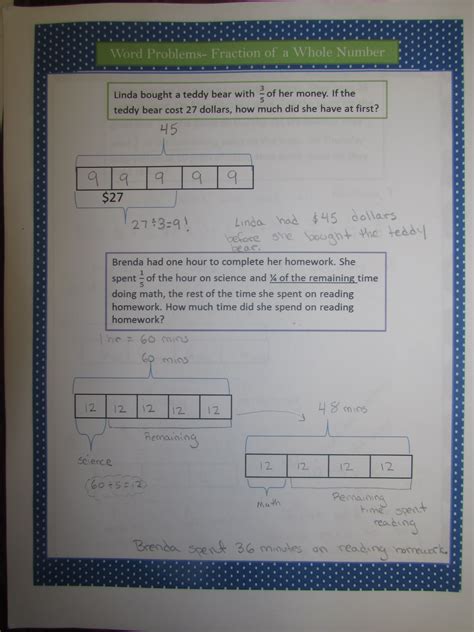 Word Problems- Fraction of a Whole Number
Linda bought a teddy bear with 3/5 of her money. If the
teddy bear cost 27 dollars, how much did she have at first?
45
9 9 9 9 9
$27
27÷3=9! Linda had $45 dollars
before she bought the teddy
bear.
Brenda had one hour to complete her homework. She
spent 1/5 of the hour on science and ¼ of the remaining time
doing math, the rest of the time she spent on reading
homework. How much time did she spend on reading
homework?
1 hr = 60 mins
60 mins
12 12 12 12 12
48 mins
Remaining
science
60÷5=12
12 12 12 12
Math
Remaining
time spent
reading
Brenda spent 36 minutes on reading homework.